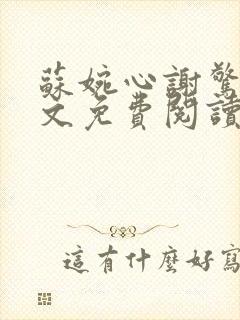 蘇婉心謝驚
文免費閱讀
這有什麼好寫